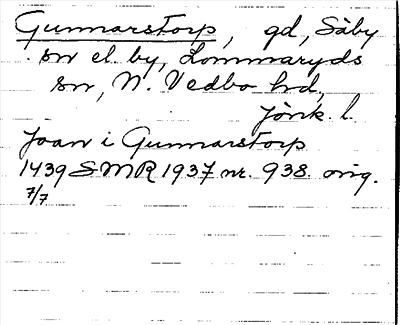 Gunnarstorp, gd, Säby
sn el. by, Lommaryds
sn, N. Vedbo hd,
Jönk. l.
Joan i Gunnarstorp
1439 SMR 1937 nr. 938. orig.
7/7